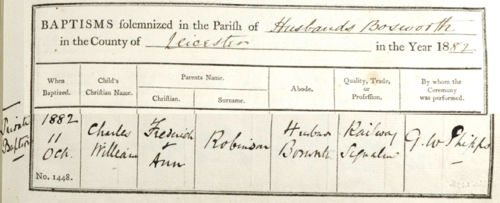 BAPTISMS solemnized in the Parish of Husbands Bosworth
in the County of Leicester in the Year 1882
When Baptized.
Child's Christian Name.
Parents Name.
Christian.
Surname.
Abode.
Quality, Trade, or Profession.
By whom the Ceremony was performed.
Private Baptism
1882
11
Oct.
No. 1448.
Charles
William
Frederick
&
Ann
Robinson
Husbands
Bosworth
Railway
Signalman
G. W. Phipps